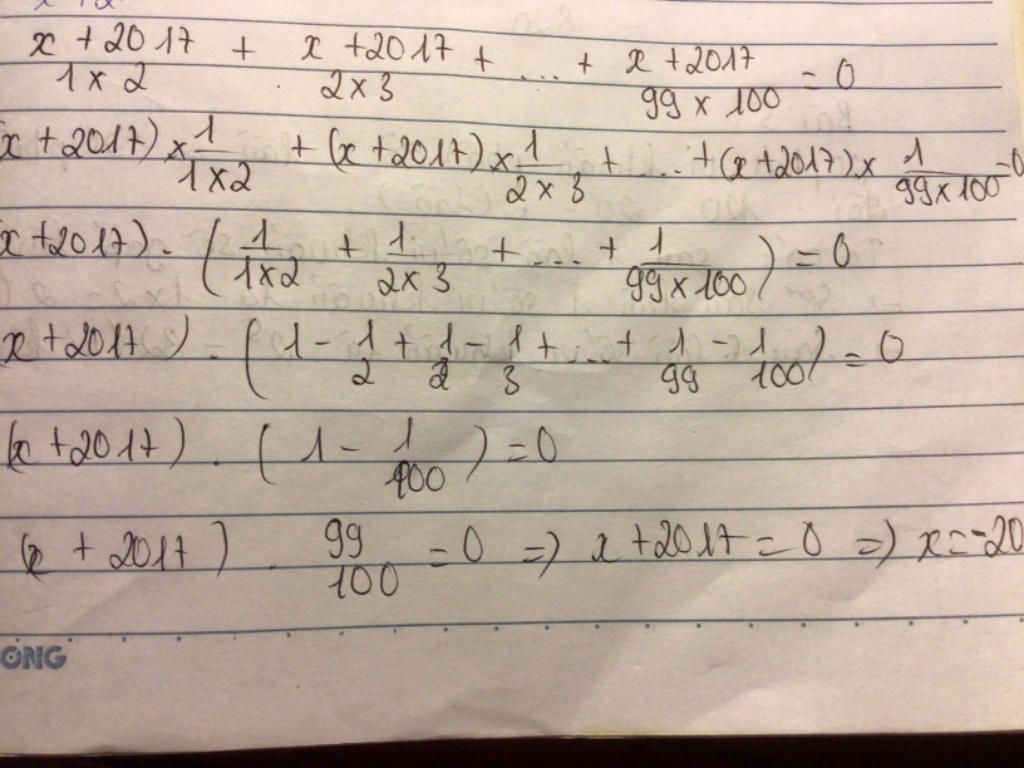 x + 2017 / 1 x 2 + x + 2017 / 2 x 3 + .... + x + 2017 / 99 x 100 = 0
x + 2017) x 1 / 1 x 2 + (x + 2017) x 1 / 2 x 3 + .... + (x + 2017) x 1 / 99 x 100 = 0
x + 2017) . ( 1 / 1 x 2 + 1 / 2 x 3 + .... + 1 / 99 x 100 ) = 0
x + 2017) . ( 1 - 1 / 2 + 1 / 2 - 1 / 3 + ... + 1 / 99 - 1 / 100 ) = 0
(x + 2017) . ( 1 - 1 / 100 ) = 0
(x + 2017) . 99 / 100 = 0 => x + 2017 = 0 => x = -20
ONG